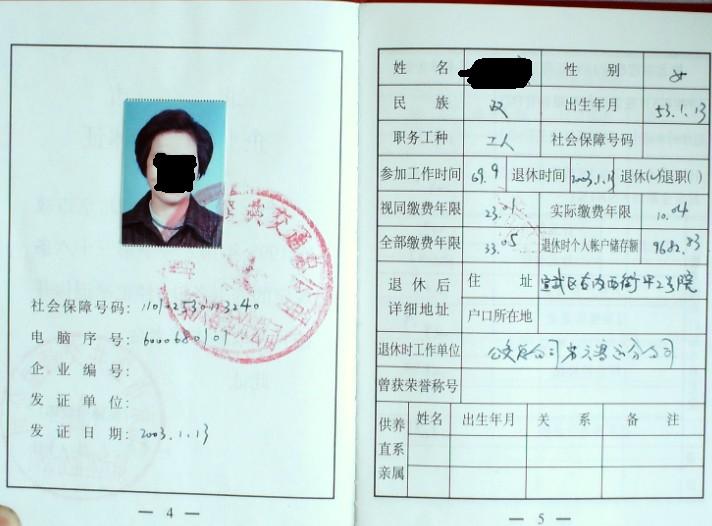 社会保障号码:
电脑序号:
企业编号:
发证单位:
发证日期:2003.1.13
— 4 —
姓名 性别 女
民族 汉 出生年月 53.1.13
职务工种 工人 社会保障号码
参加工作时间 69.9 退休时间 2003.1.13 退休(✓)退职( )
视同缴费年限 23.01 实际缴费年限 10.04
全部缴费年限 33.05 退休时个人帐户储存额 9682.83
退休后详细地址 住址 宣武区右内西街甲2号院
户口所在地
退休时工作单位 公交总公司
曾获荣誉称号
供养直系亲属 姓名 出生年月 关系 备注
— 5 —